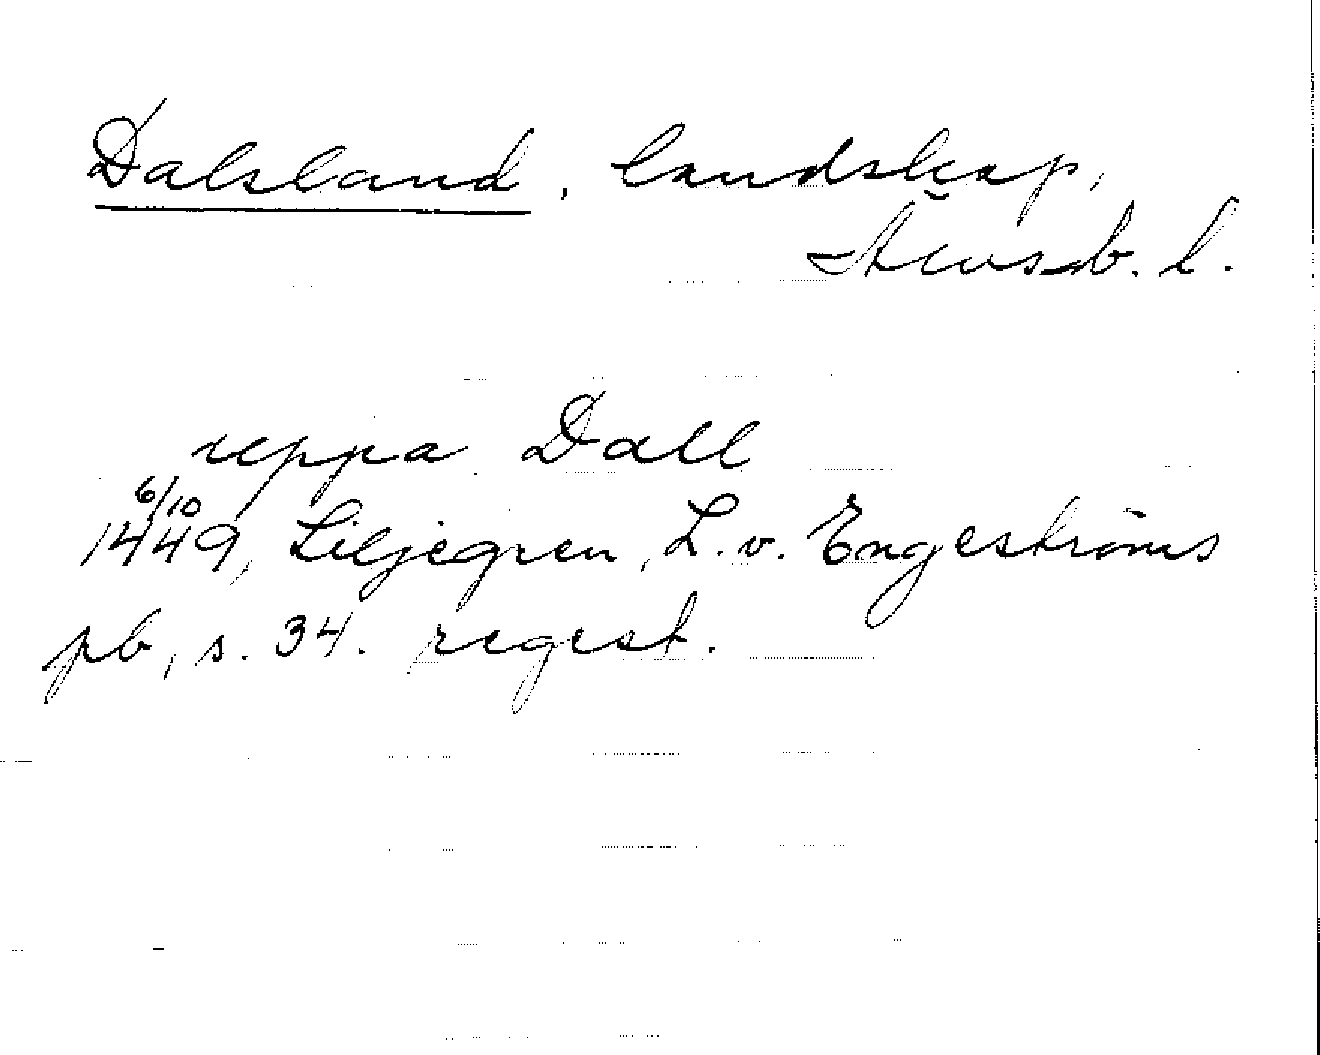 Dalsland, landskap,
Älvsb. l.
reppa Dall
6/10
1449, Liljegren, L. v. Engeströms
pb, s. 34. regest.